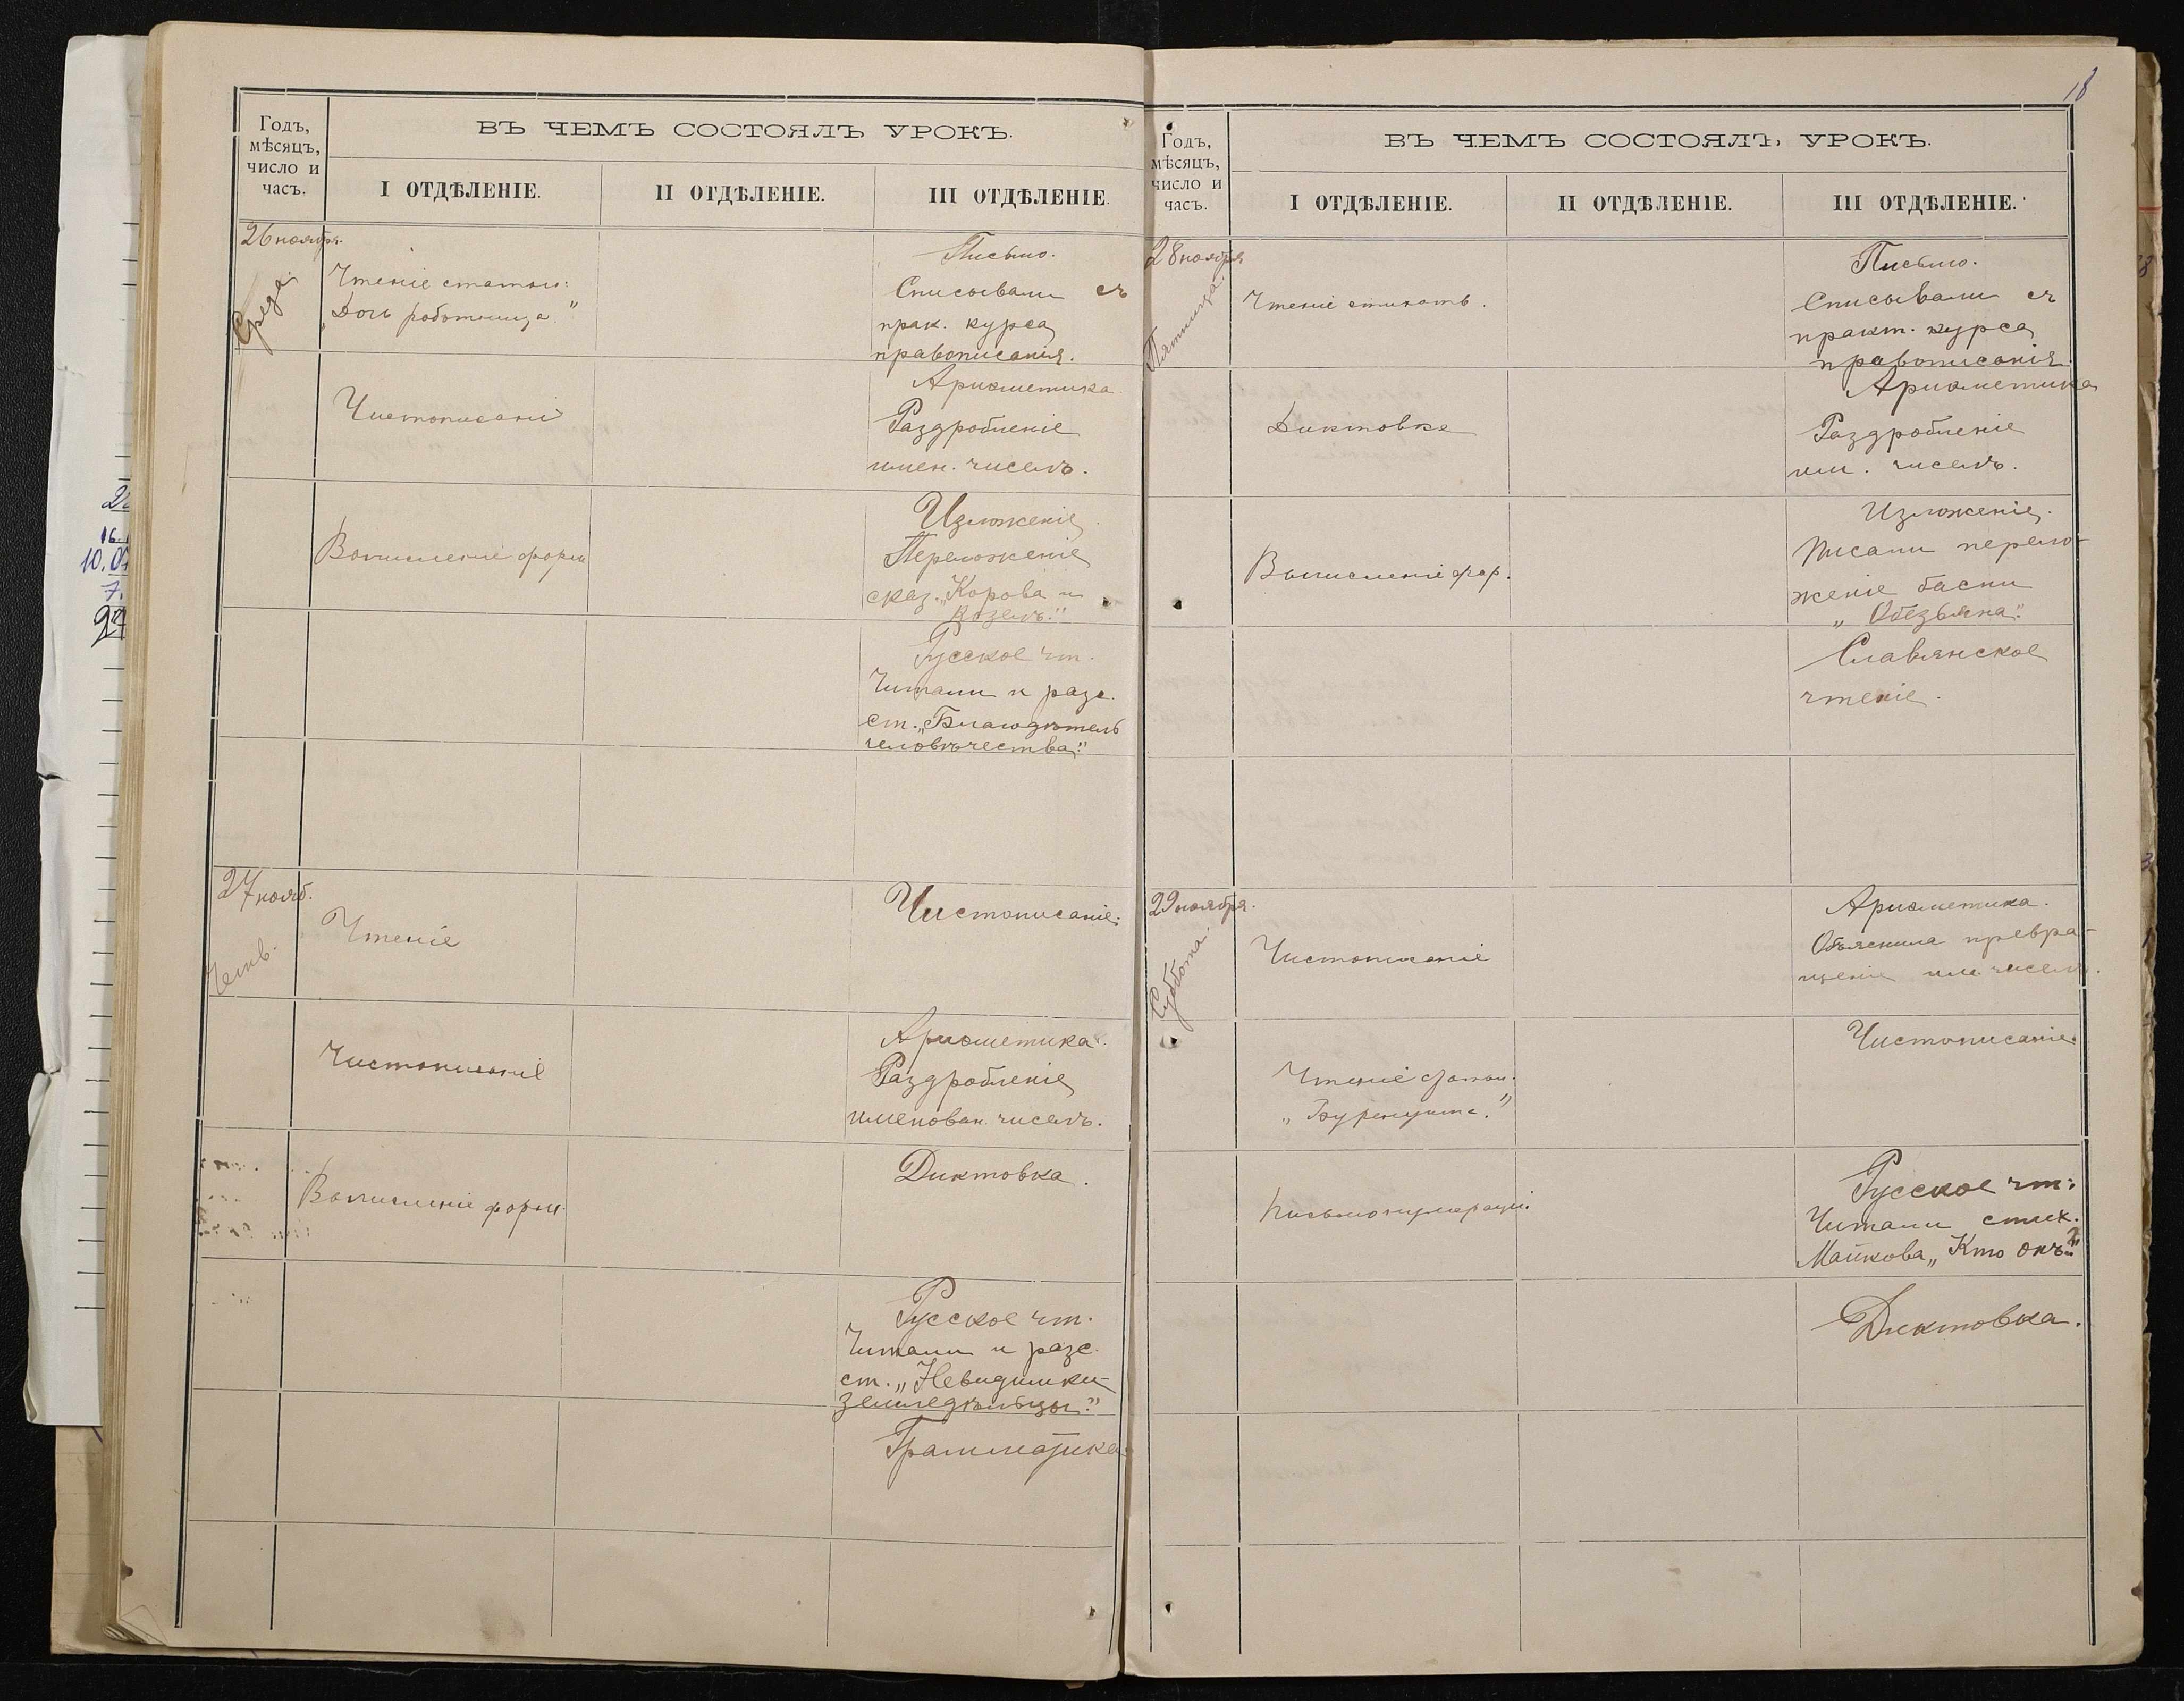 18
Годъ,
мѣсяцъ,
число и
часъ.
ВЪ ЧЕМЪ СОСТОЯЛЪ УРОКЪ.
I ОТДѢЛЕНІЕ.
II ОТДѢЛЕНІЕ.
III ОТДѢЛЕНІЕ.
26 ноября.
Среда.
Чтеніе статьи:
„Дочь работница."
Письмо.
Списывали съ
прак. курса
правописанія.
Чистописаніе
Ариѳметика
Раздробленіе
имен. чиселъ.
Вычисленіе форм
Изложеніе.
Переложеніе
сказ. „Корова и
козелъ."
Русское чт.
Читали и разс.
ст. „Благодѣтель
человѣчества."
27 нояб.
Четв.
Чтеніе
Чистописаніе.
Чистописаніе
Ариѳметика.
Раздробленіе
именован. чиселъ.
Вычисленіе форм.
Диктовка.
Русское чт.
Читали и разс.
ст. „Невидимки-
земледѣльцы."
Грамматика
Годъ,
мѣсяцъ,
число и
часъ.
ВЪ ЧЕМЪ СОСТОЯЛЪ УРОКЪ.
I ОТДѢЛЕНІЕ.
II ОТДѢЛЕНІЕ.
III ОТДѢЛЕНІЕ.
28 ноября
Пятница.
Чтеніе стихотв.
Письмо.
Списывали съ
практ. курса
правописанія.
Диктовка
Ариѳметика
Раздробленіе
им. чиселъ.
Вычисленіе фор.
Изложеніе.
Писали перело-
женіе басни
„Обезьяна."
Славянское
чтеніе.
29 ноября.
Суббота.
Чистописаніе
Ариѳметика.
Объяснила превра-
щеніе им. чиселъ.
Чтеніе статьи.
„Буренушка."
Чистописаніе.
Русское чт.
Читали стих.
Майкова „Кто онъ?"
Диктовка.